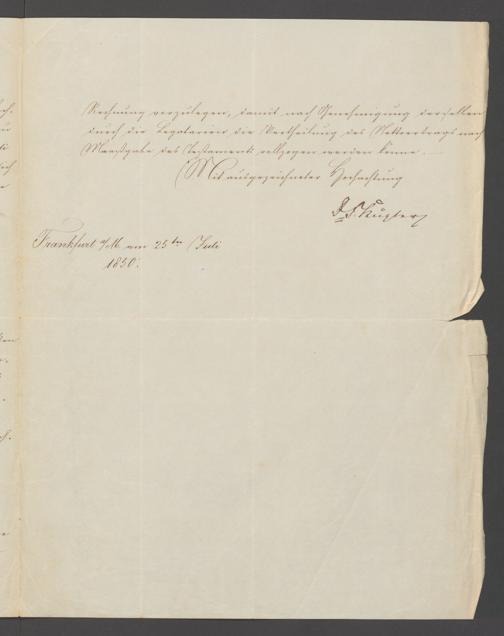 Rechnung vorzulegen, damit nach Genehmigung derselben
durch die Legatarien die Vertheilung des Nettoertrags nach
Maasgabe des Testaments vollzogen werden könne.
Mit ausgezeichneter Hochachtung
Frankfurt a/M. am 25ten Juli
1850.